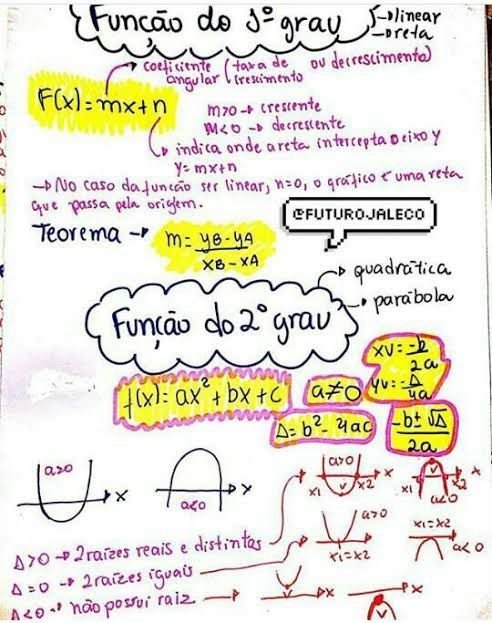 Função do 1º grau
→ linear
→ reta
F(x)=mx+n
→ coeficiente angular (taxa de crescimento ou decrescimento)
m>0 → crescente
m<0 → decrescente
indica onde a reta intercepta o eixo y
y=mx+n
→ No caso da função ser linear, n=0, o gráfico é uma reta
que passa pela origem.
@FUTUROJALECO
Teorema → m= yB-yA / xB-xA
→ quadrática
→ parábola
Função do 2º grau
xv= -b / 2a
yv= -Δ / 4a
f(x)= ax²+bx+c
a≠0
Δ=b²-4ac
-b±√Δ / 2a
a>0 x
a<0 x
a>0 x x1 x2 v
x1 x2 v a<0 x
Δ>0 → 2 raízes reais e distintas
a>0 x1=x2
x1=x2 a<0
Δ=0 → 2 raízes iguais
Δ<0 → não possui raiz
v x
x v